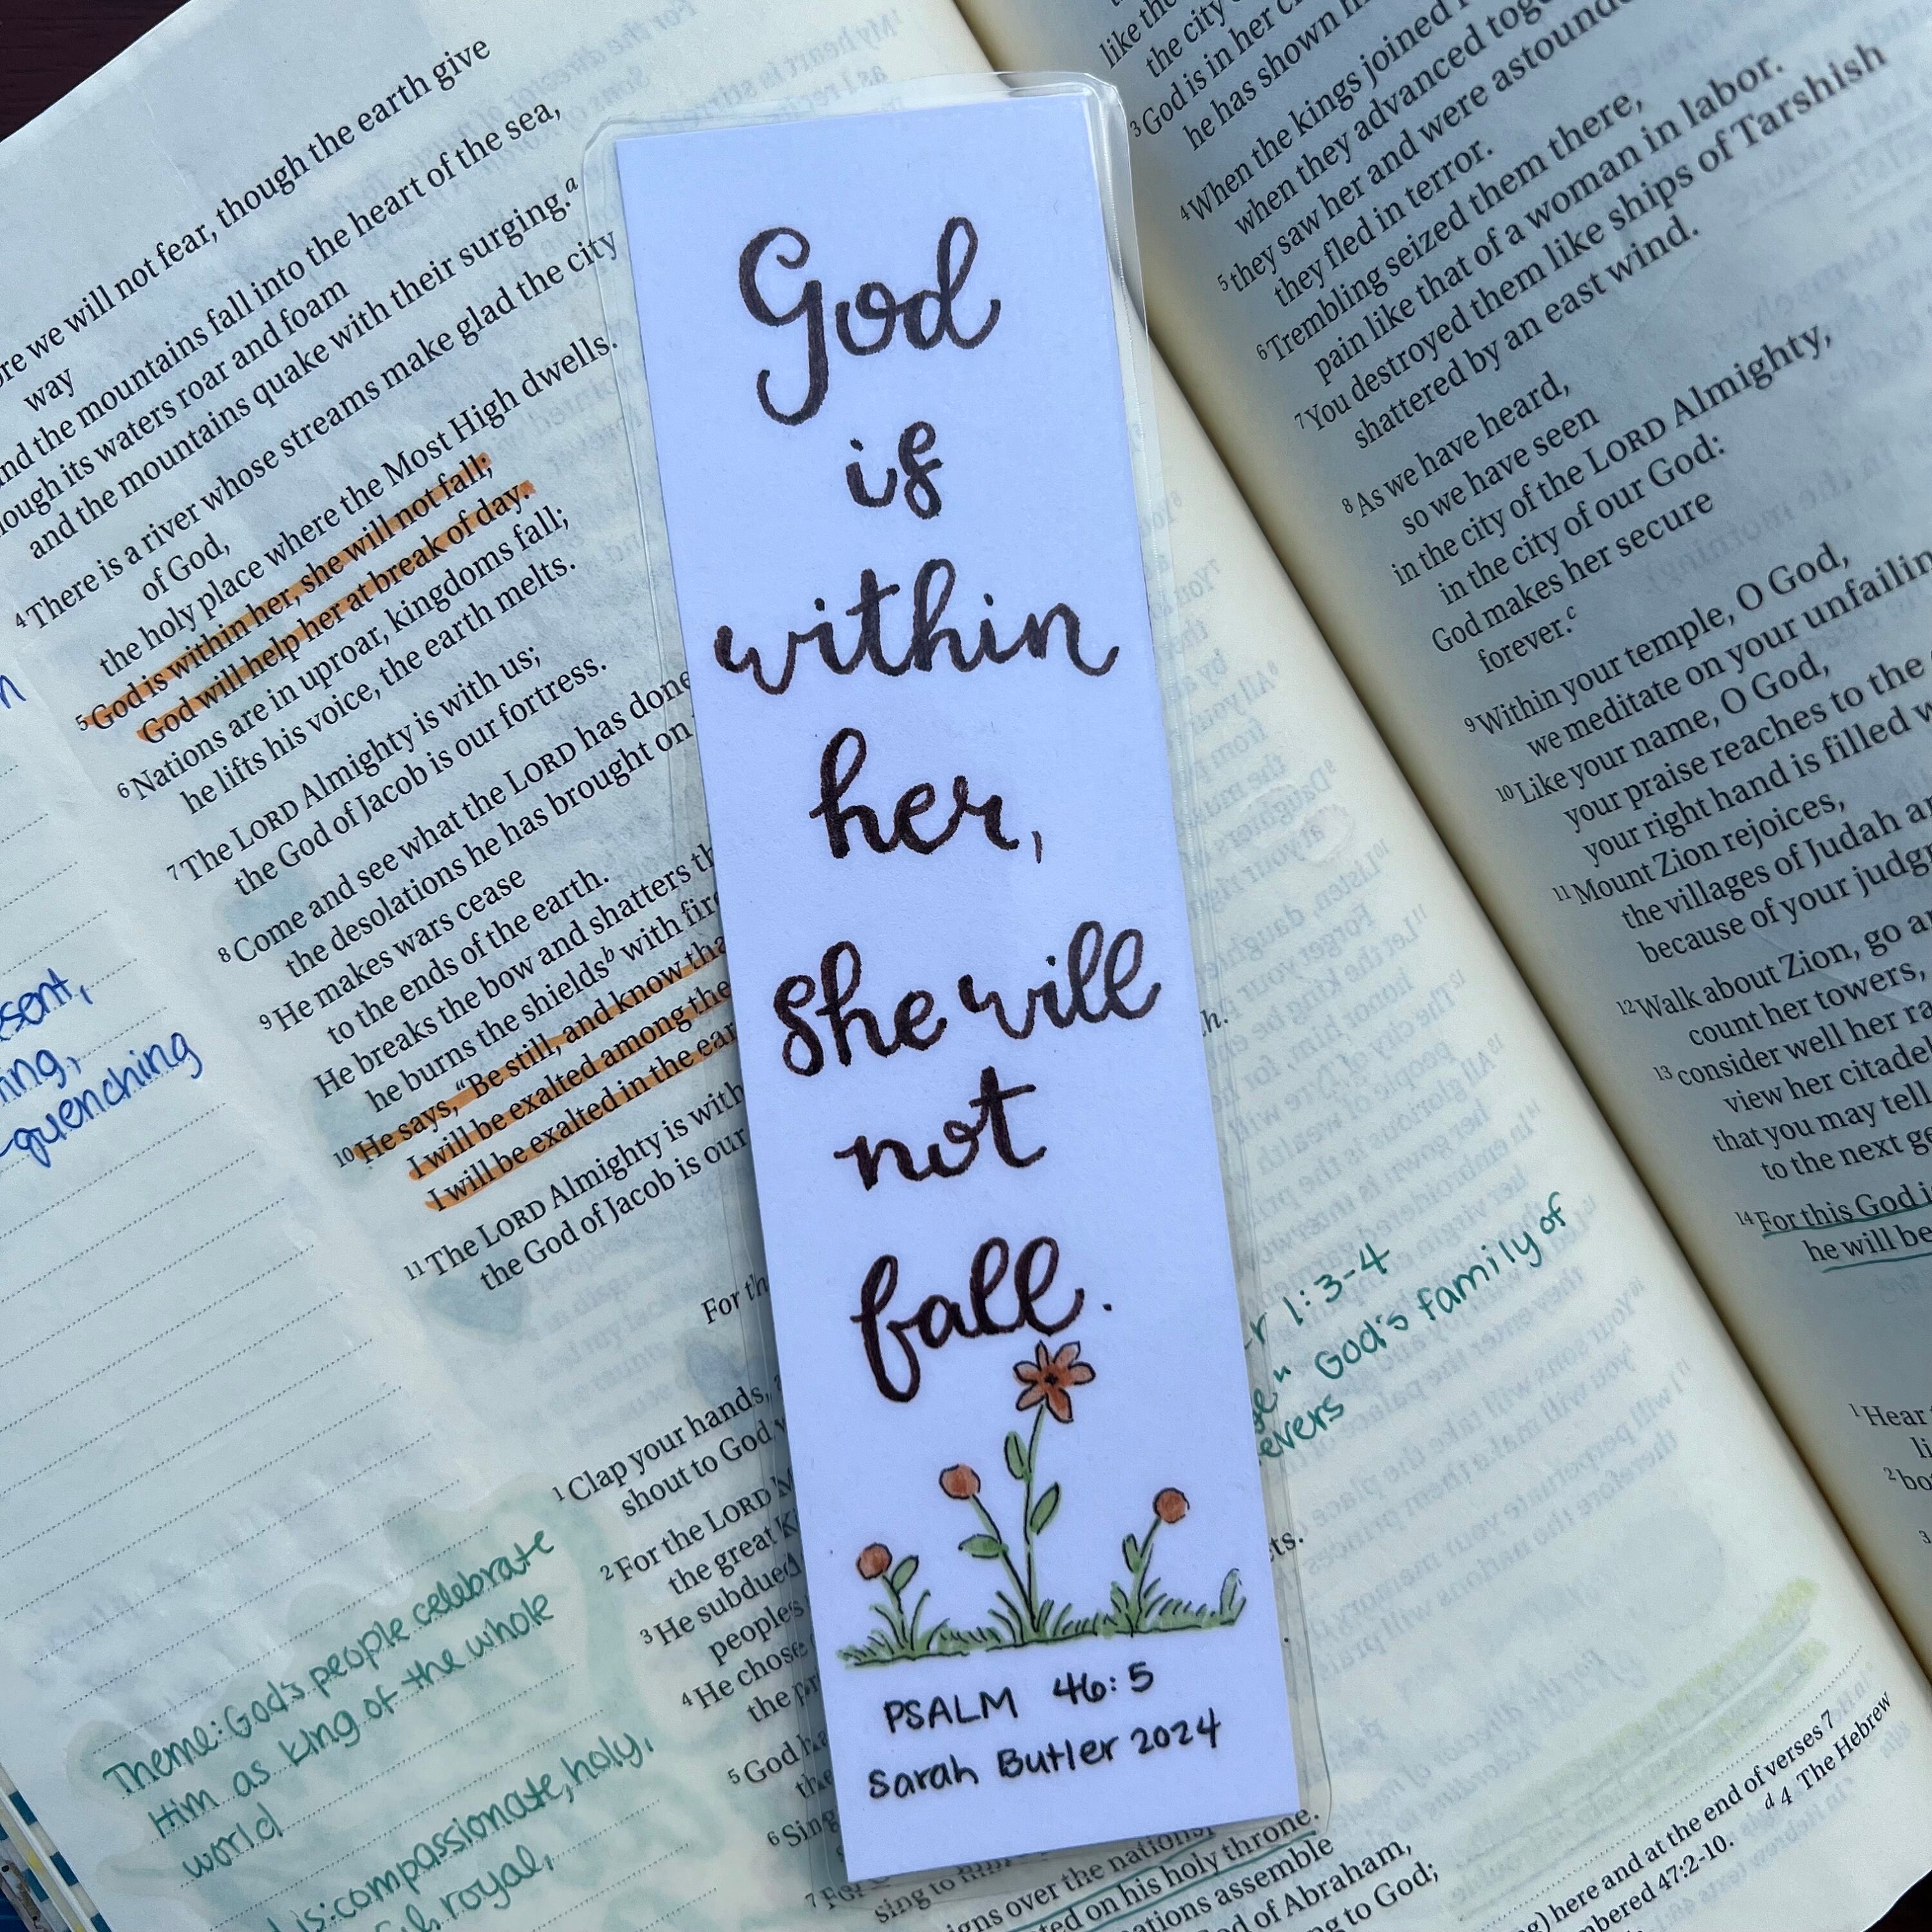 God
is
within
her,
She will
not
fall.
PSALM 46:5
Sarah Butler 2024
we will not fear, though the earth give
way
and the mountains fall into the heart of the sea,
though its waters roar and foam
and the mountains quake with their surging.a
4 There is a river whose streams make glad the city
of God,
the holy place where the Most High dwells.
5 God is within her, she will not fall;
God will help her at break of day.
6 Nations are in uproar, kingdoms fall;
he lifts his voice, the earth melts.
7 The LORD Almighty is with us;
the God of Jacob is our fortress.
8 Come and see what the LORD has done
the desolations he has brought on
9 He makes wars cease
to the ends of the earth.
He breaks the bow and shatters
he burns the shieldsb with
10 He says, "Be still, and know
I will be exalted among the
I will be exalted in the
11 The LORD Almighty is with
the God of Jacob is our
For
1 Clap your hands,
shout to God
2 For the LORD
the great
3 He subdued
peoples
4 He chose
the
5 God
6 Sing
7 For
sing to
over the nations;
on his holy throne.
nations assemble
of Abraham,
to God;
quenching
Theme: God's people celebrate
Him as king of the whole
world
compassionate, holy,
royal,
1:3-4
God's family of
like the
the city
3 God is in her
he has shown
4 When the kings joined
when they advanced
5 they saw her and were astounded
they fled in terror.
6 Trembling seized them there,
pain like that of a woman in labor.
7 You destroyed them like ships of Tarshish
shattered by an east wind.
8 As we have heard,
so we have seen
in the city of the LORD Almighty,
in the city of our God:
God makes her secure
forever.c
9 Within your temple, O God,
we meditate on your
10 Like your name, O God,
your praise reaches to the
your right hand is filled
11 Mount Zion rejoices,
the villages of Judah
because of your
12 Walk about Zion, go
count her towers,
13 consider well her
view her
that you may tell
to the next
14 For this God
he will be
1 Hear
2
3
here and at the end of verses 7
47:2-10. d 4 The Hebrew